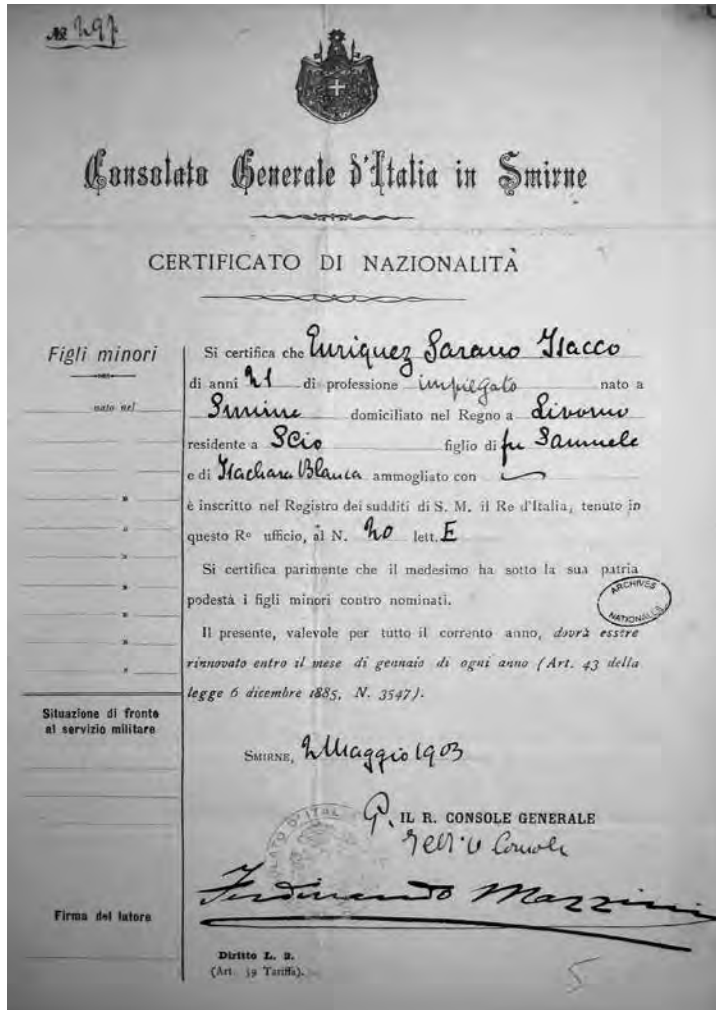 № 297
Consolato Generale d'Italia in Smirne
CERTIFICATO DI NAZIONALITÀ
Figli minori
nato nel
Si certifica che Enriquez Sarano Isacco
di anni 21 di professione impiegato nato a
Smirne domiciliato nel Regno a Livorno
residente a Scio figlio di fu Samuele
e di Blanca ammogliato con
è inscritto nel Registro dei sudditi di S. M. il Re d'Italia, tenuto in
questo Rº ufficio, al N. 20 lett. E
Si certifica parimente che il medesimo ha sotto la sua patria
podestà i figli minori contro nominati.
ARCHIVES
NATIONALES
Il presente, valevole per tutto il corrento anno, dovrà essere
rinnovato entro il mese di gennaio di ogni anno (Art. 43 della
legge 6 dicembre 1885, N. 3547).
Situazione di fronte
al servizio militare
SMIRNE, 2 Maggio 1903
P. IL R. CONSOLE GENERALE
Console
Ferdinando Mazzini
Firma del latore
Diritto L. 2.
(Art. 39 Tariffa).
5